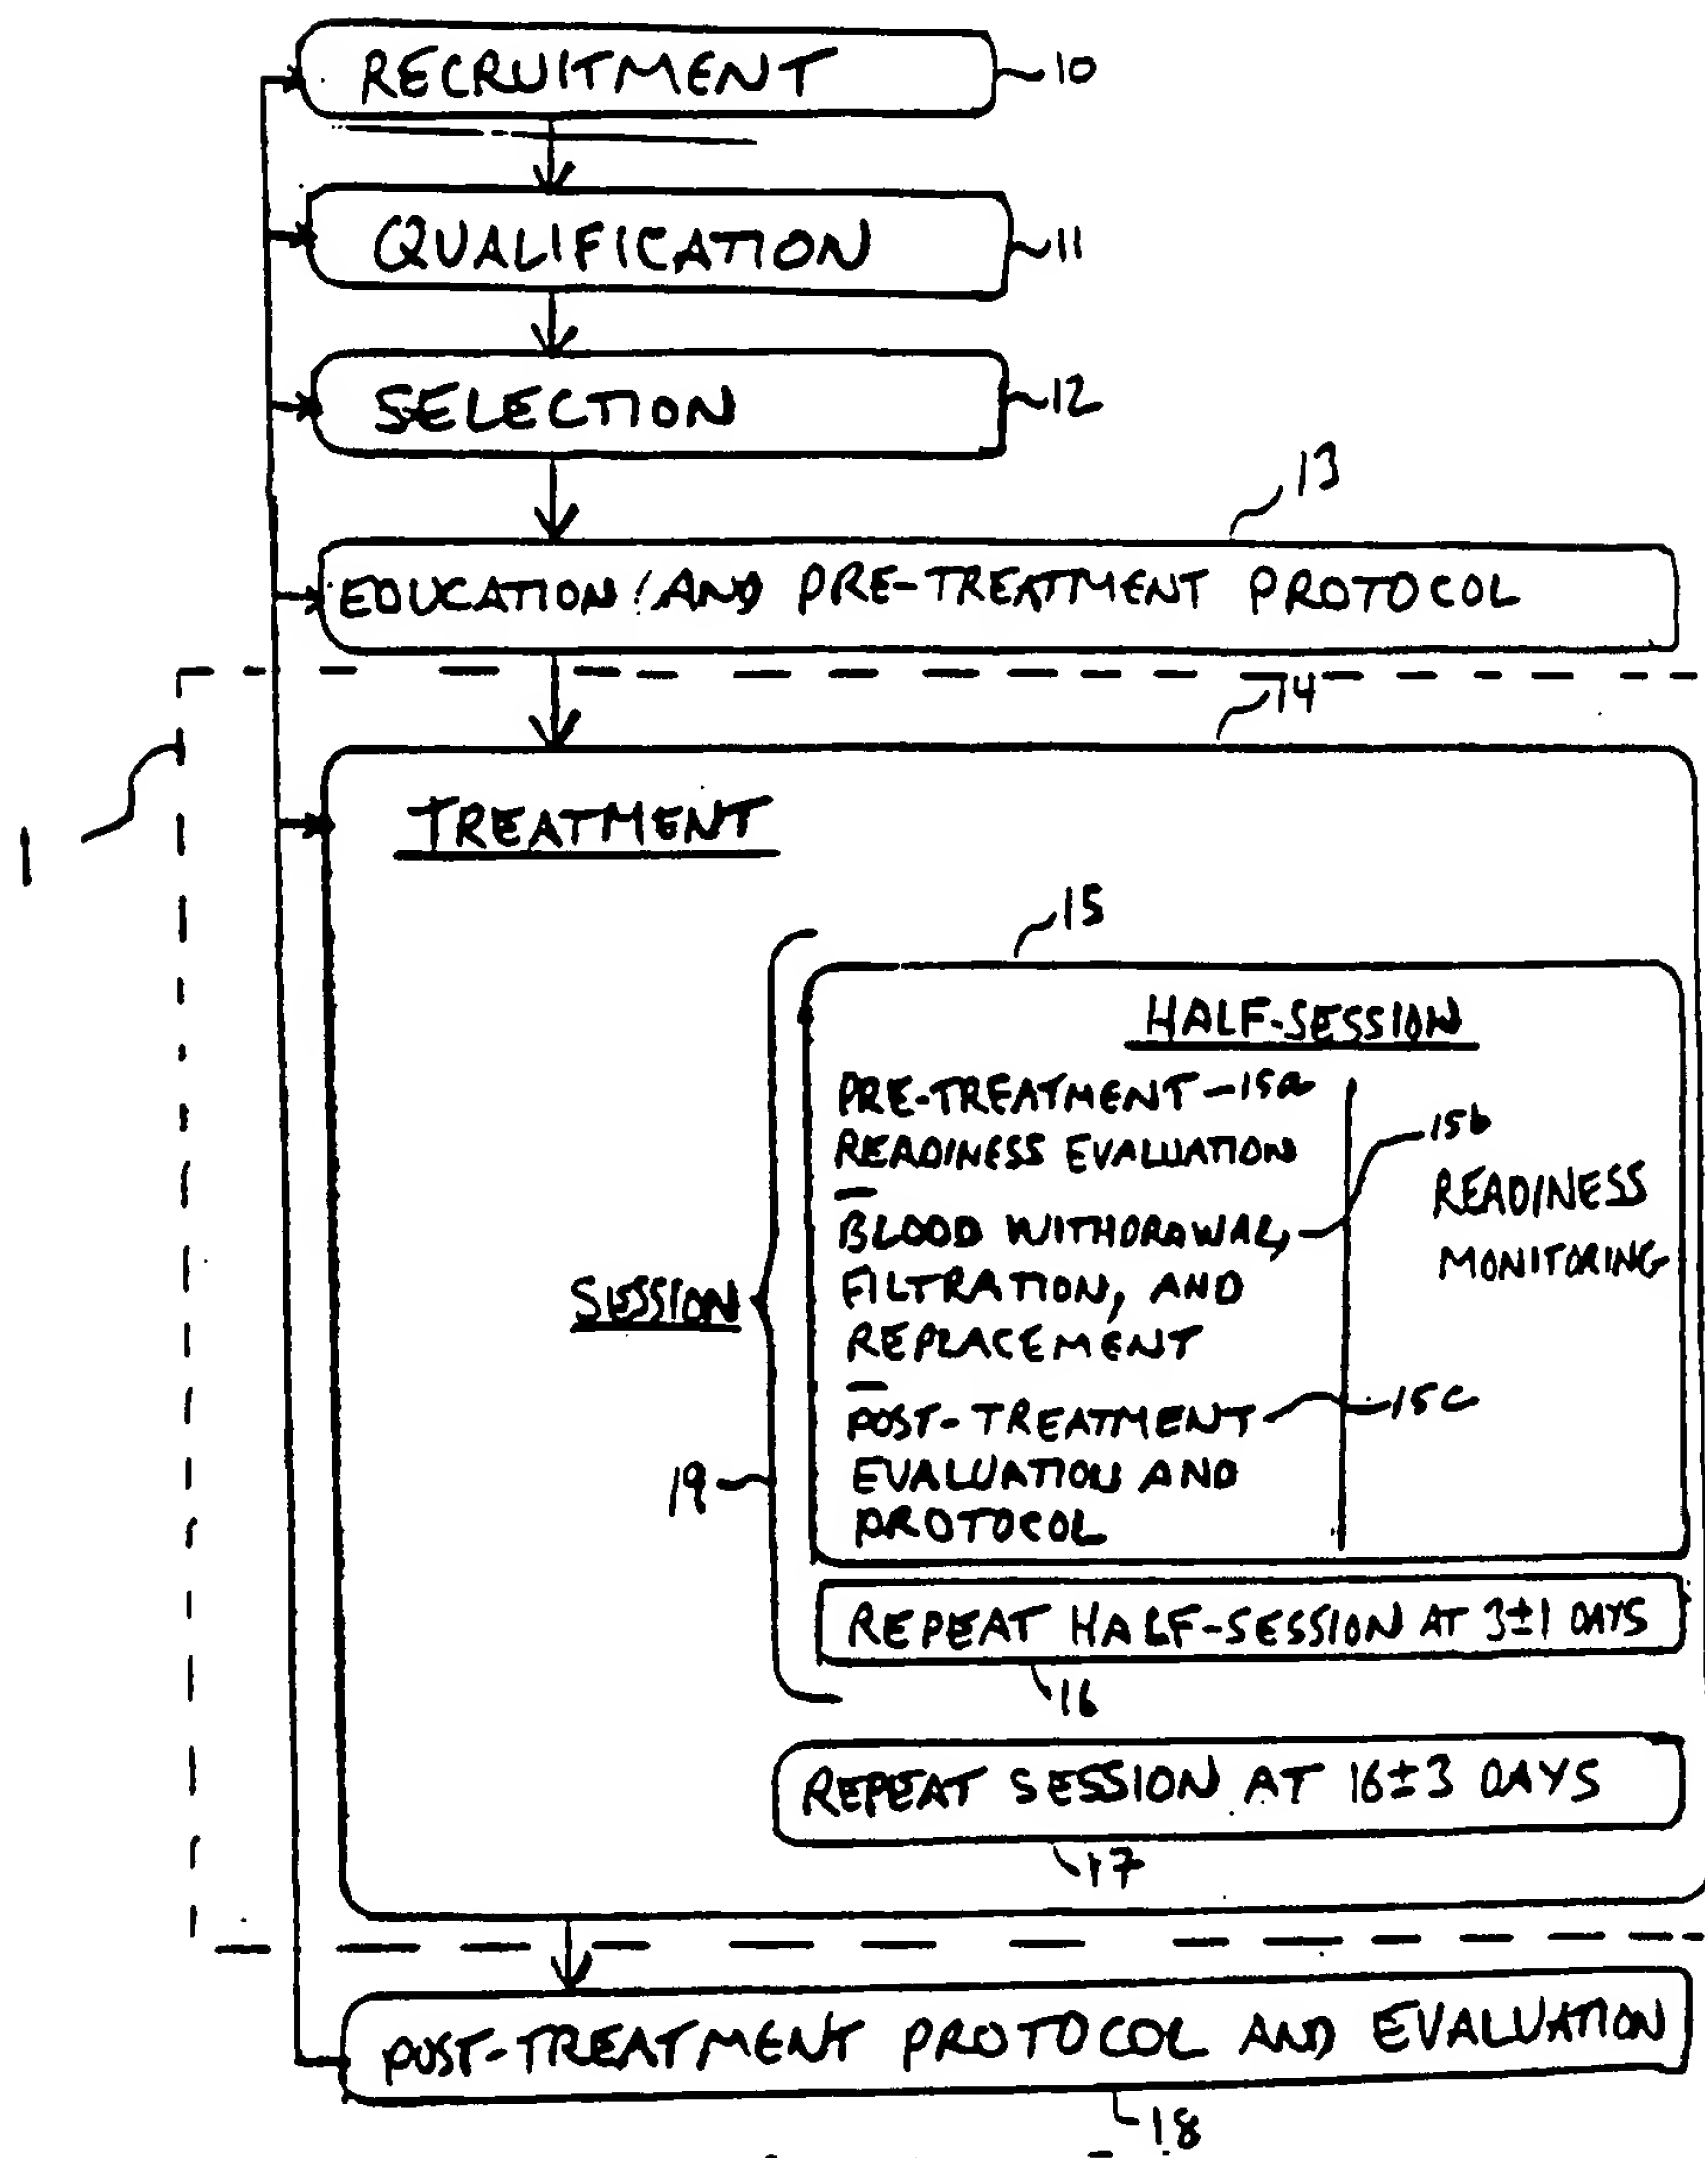 RECRUITMENT
10
QUALIFICATION
11
SELECTION
12
13
EDUCATION AND PRE-TREATMENT PROTOCOL
14
1
TREATMENT
15
HALF-SESSION
PRE-TREATMENT - 15a
READINESS EVALUATION
15b
BLOOD WITHDRAWAL,
FILTRATION, AND
REPLACEMENT
READINESS
MONITORING
SESSION
POST-TREATMENT
15c
EVALUATION AND
PROTOCOL
19
REPEAT HALF-SESSION AT 3±1 DAYS
16
REPEAT SESSION AT 16±3 DAYS
17
POST-TREATMENT PROTOCOL AND EVALUATION
18